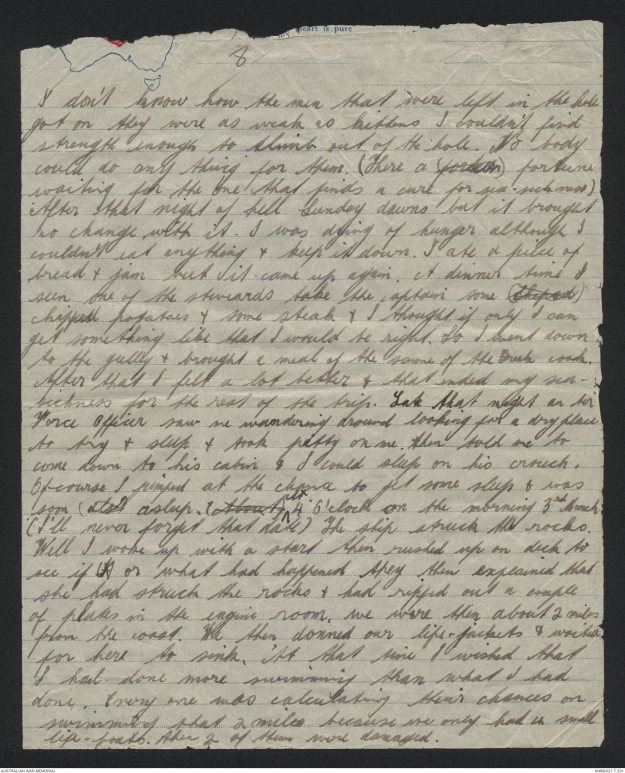 heart is pure
8
I don't know how the men that were left in the hole
got on they were as weak as kittens I couldn't find
strength enough to climb out of the hole. No body
could do any thing for them. (There a fortune
waiting for the one that finds a cure for sea-sickness)
After that night of hell Sunday dawns but it brought
no change with it. I was dying of hunger although I
couldn't eat anything & keep it down. I ate a piece of
bread & jam but it came up again. At dinner time I
seen one of the stewards take the captain some (chiped)
chipped potatoes & some steak & I thought if only I can
get something like that I would be right. So I went down
to the gully & brought a meal of the same of the Greek cook.
After that I felt a lot better & that ended my sea-
sickness for the rest of the trip. Late that night an Air
Force Officer saw me wandering around looking for a dry place
to try & sleep & took pitty on me then told me to
come down to his cabin & I could sleep on his crouch.
Of course I jumped at the chance to get some sleep & was
soon asleep. (about) 4 O'clock on the morning 3rd March
(I'll never forget that date) The ship struck the rocks.
Well I woke up with a start then rushed up on deck to
see if or what had happened they then explained that
she had struck the rocks & had ripped out a couple
of plates in the engine room. we were then about 2 miles
from the coast. We then donned our life-jackets & waited
for here to sink. At that time I wished that
I had done more swimming than what I had
done. Every one was calculating their chances on
swimming that 2 miles because we only had 4 small
life-boats. then 2 of them were damaged.
AUSTRALIAN WAR MEMORIAL